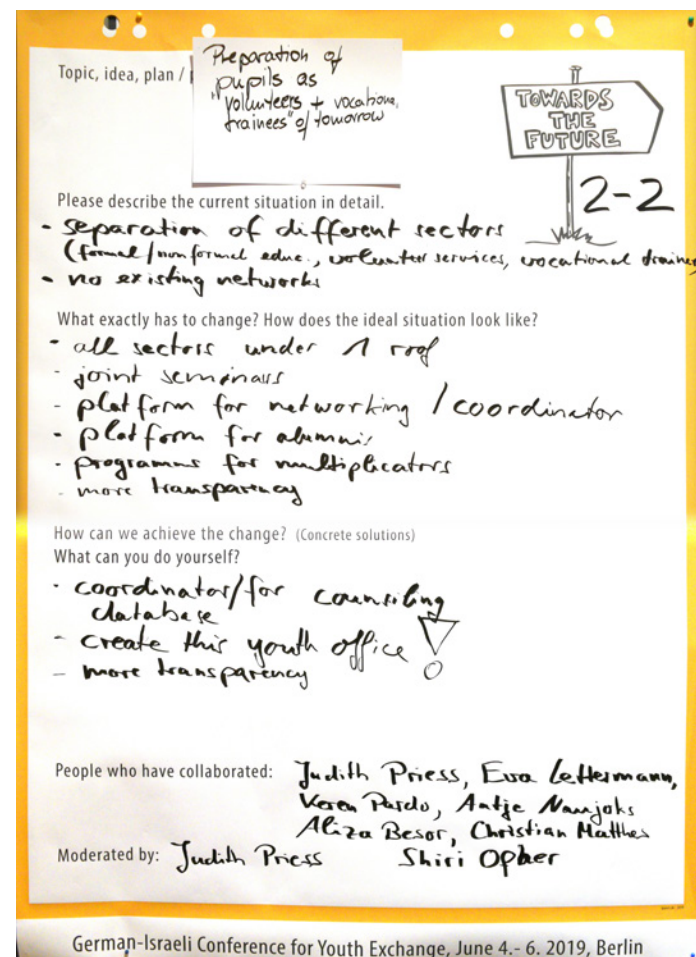 Topic, idea, plan /
Preparation of
pupils as
"volunteers + vocationa.
trainees" of tomorrow
TOWARDS
THE
FUTURE
2-2
Please describe the current situation in detail.
- separation of different sectors
(formal/nonformal educ., volunteer services, vocational trainee
- no existing networks
What exactly has to change? How does the ideal situation look like?
- all sectors under 1 roof
- joint seminars
- platform for networking / coordinator
- platform for alumnis
- programms for multiplicators
- more transparency
How can we achieve the change? (Concrete solutions)
What can you do yourself?
- coordinator/for counseling
database
- create this youth office !
- more transparency
People who have collaborated: Judith Priess, Eva Lettermann,
Keren Pardo, Antje Naujoks
Aliza Besor, Christian Matthes
Moderated by: Judith Priess Shiri Opher
German-Israeli Conference for Youth Exchange, June 4.- 6. 2019, Berlin